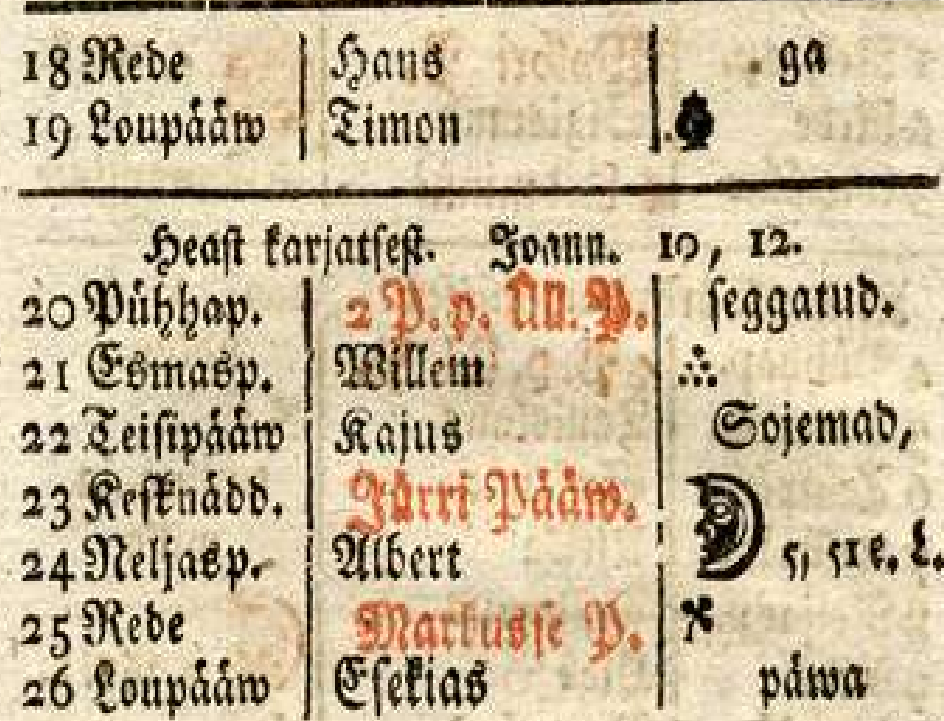 18 Rede Hans ga
19 Loupääw Timon
Heast karjatsest. Joann. 10, 12.
20 Pühhap. 2 P. p. Ül. P. seggatud.
21 Esmasp. Willem
22 Teisipääw Kajus Sojemad,
23 Kesknädd. Jürri Pääw.
24 Neljasp. Albert 5, 51 k. L.
25 Rede Markusse P.
26 Loupääw Esekias päwa